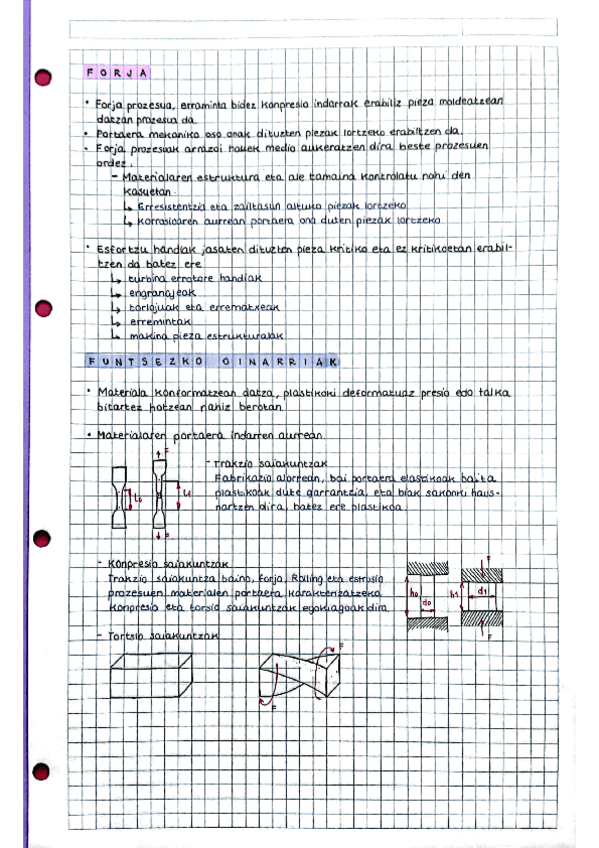 FORJA
• Forja prozesua, erraminta bidez konpresio indarrak erabiliz pieza moldeatzean
datzan prozesua da.
• Portaera mekaniko oso onak dituzten piezak lortzeko erabiltzen da.
• Forja prozesuak arrazoi hauek medio aukeratzen dira beste prozesuen
ordez:
- Materialaren estruktura eta ale tamaina kontrolatu nahi den
kasuetan.
↳ Erresistentzia eta zailtasun altuko piezak lortzeko
↳ Korrosioaren aurrean portaera ona duten piezak lortzeko
• Esfortzu handiak jasaten dituzten pieza kritiko eta ez kritikoetan erabil-
tzen da batez ere
↳ turbina errotore handiak
↳ engranajeak
↳ torlojuak eta errematxeak
↳ erremintak
↳ makina pieza estrukturalak
FUNTSEZKO OINARRIAK
• Materiala konformatzean datza, plastikoki deformatuaz presio edo talka
bitartez hotzean nahiz berotan.
• Materialaren portaera indarren aurrean.
F
- Trakzio saiakuntzak
Fabrikazio alorrean, bai portaera elastikoak baita
plastikoak dute garrantzia, eta biak sakonki haus-
nartzen dira, batez ere plastikoa.
L0
Lf
F
- Konpresio saiakuntzak
Trakzio saiakuntza baino, forja, Rolling eta estrusio
prozesuen materialen portaera karakterizatzeko,
konpresio eta torsio saiakuntzak egokiagoak dira.
F
h0
d0
h1
d1
F
- Tortsio saiakuntzak
F
F